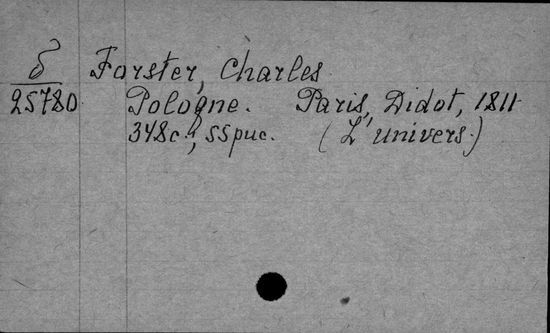 δ Forster, Charles
25780 Pologne. Paris, Didot, 1811
348с., 55рис. (L'univers.)